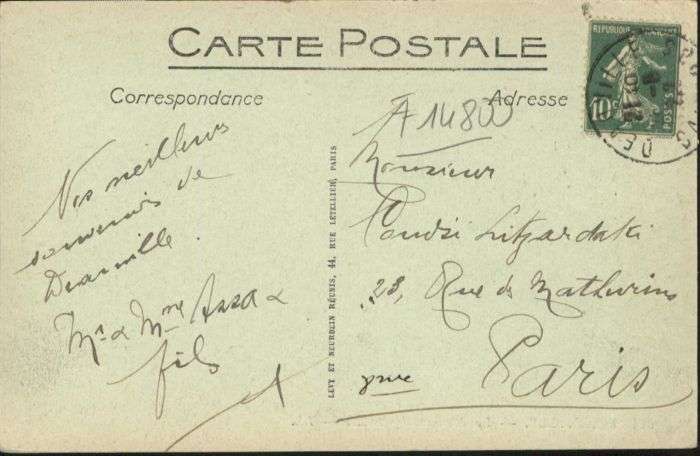 CARTE POSTALE
Correspondance
Adresse
REPUBLIQUE FRANÇAISE
10c
POSTES
A 14800
Nos meilleurs
souvenirs de
Deauville.
Mr & Mme Assa &
fils
LEVY ET NEURDEIN RÉUNIS, 44, RUE LETELLIER, PARIS
Monsieur
23, Rue des Mathurins
Paris